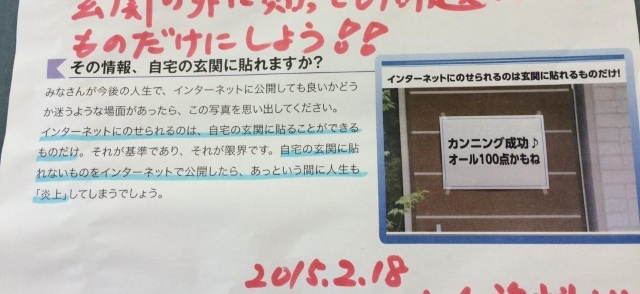 玄関の外に貼っても問題ない
ものだけにしよう!!
その情報、自宅の玄関に貼れますか?
みなさんが今後の人生で、インターネットに公開しても良いかどう
か迷うような場面があったら、この写真を思い出してください。
インターネットにのせられるのは、自宅の玄関に貼ることができる
ものだけ。それが基準であり、それが限界です。自宅の玄関に貼
れないものをインターネットで公開したら、あっという間に人生も
「炎上」してしまうでしょう。
インターネットにのせられるのは玄関に貼れるものだけ!
カンニング成功♪
オール100点かもね
2015.2.18